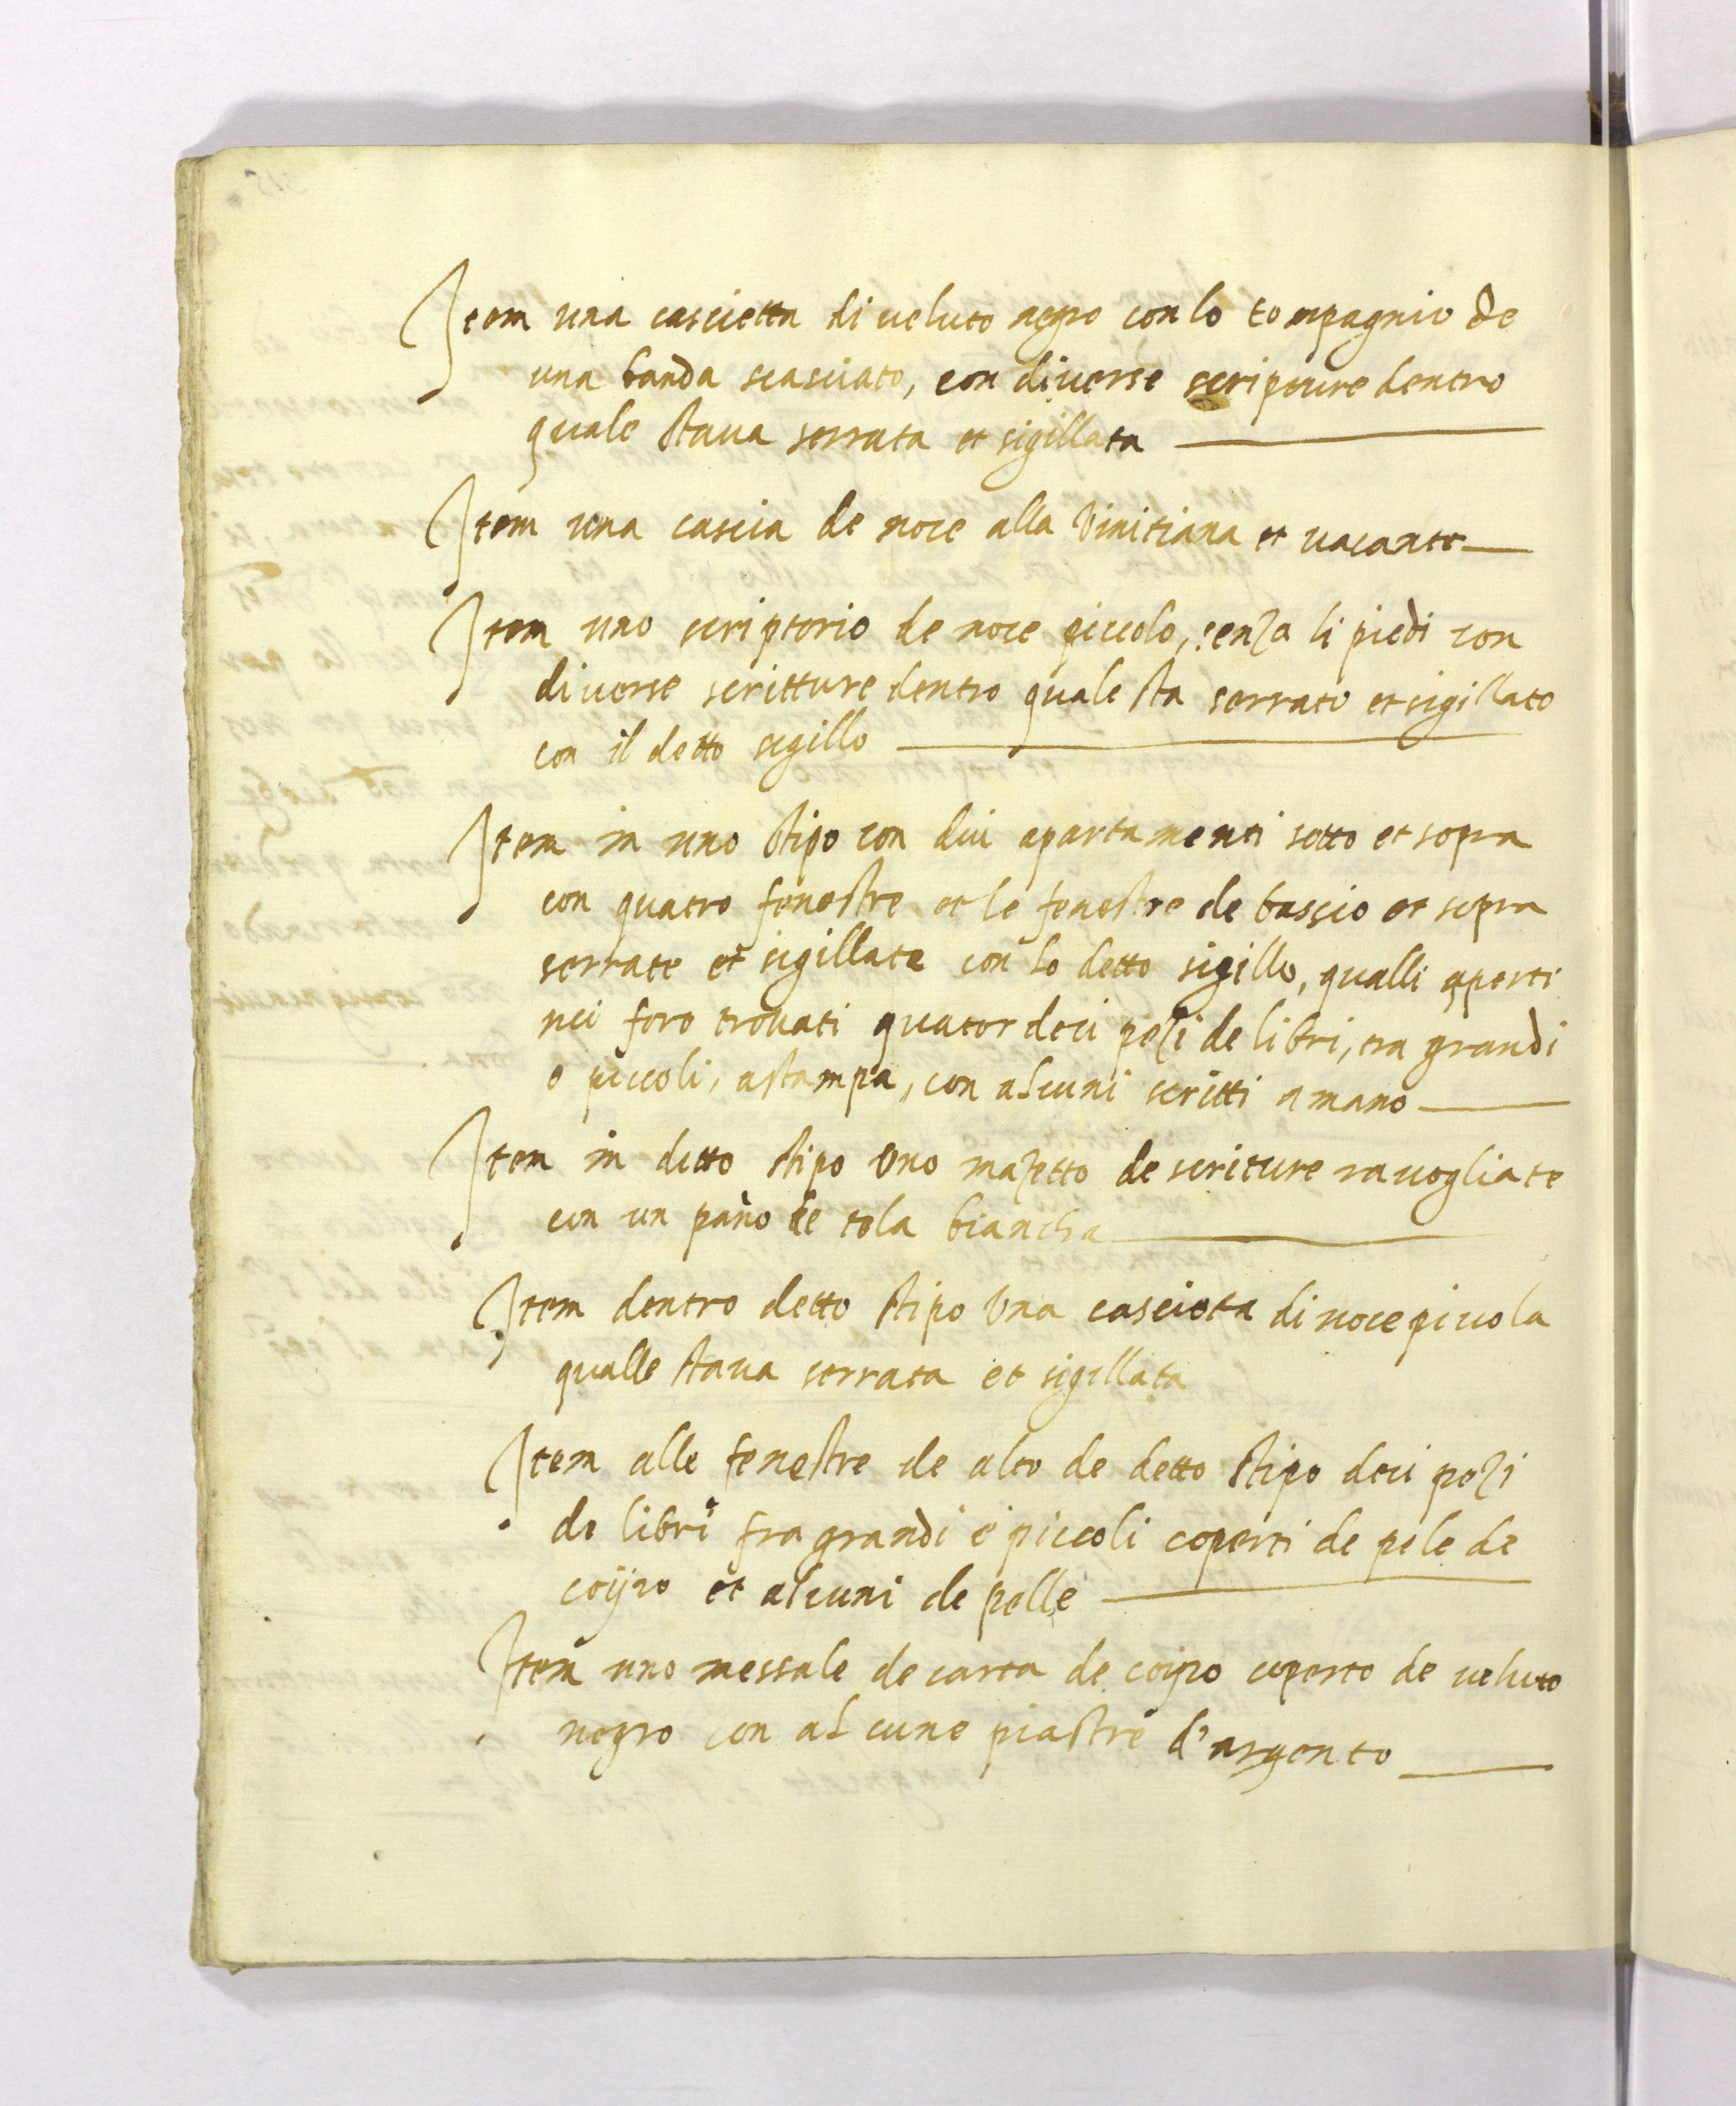 Item una cascietta di veluto negro con lo tompagnio de
una banda scasciato, con diverse scripture dentro
quale stava serrata et sigillata
Item una cascia de noce alla Vinitiana et vacante
Item uno scriptorio de noce piccolo, senza li piedi con
diverse scritture dentro quale sta serrato et sigillato
con il detto sigillo
Item in uno stipo con dui apartamenti sotto et sopra
con quatro fenestre et le fenestre de bascio et sopra
serrate et sigillate con lo detto sigillo, qualli aperti
nci foro trovati quatordeci pezi de libri, tra grandi
e piccoli, a stampa, con alcuni scritti a mano
Item in detto stipo uno mazetto de scriture ravogliate
con un pano de tela biancha
Item dentro detto stipo una casciota di noce picola
qualle stava serrata et sigillata
Item alle fenestre de alto de detto stipo deci pezi
de libri fra grandi e piccoli coperti de pele de
coijro et alcuni de pelle
Item uno messale de carta de coijro coperto de veluto
negro con alcune piastre d'argento